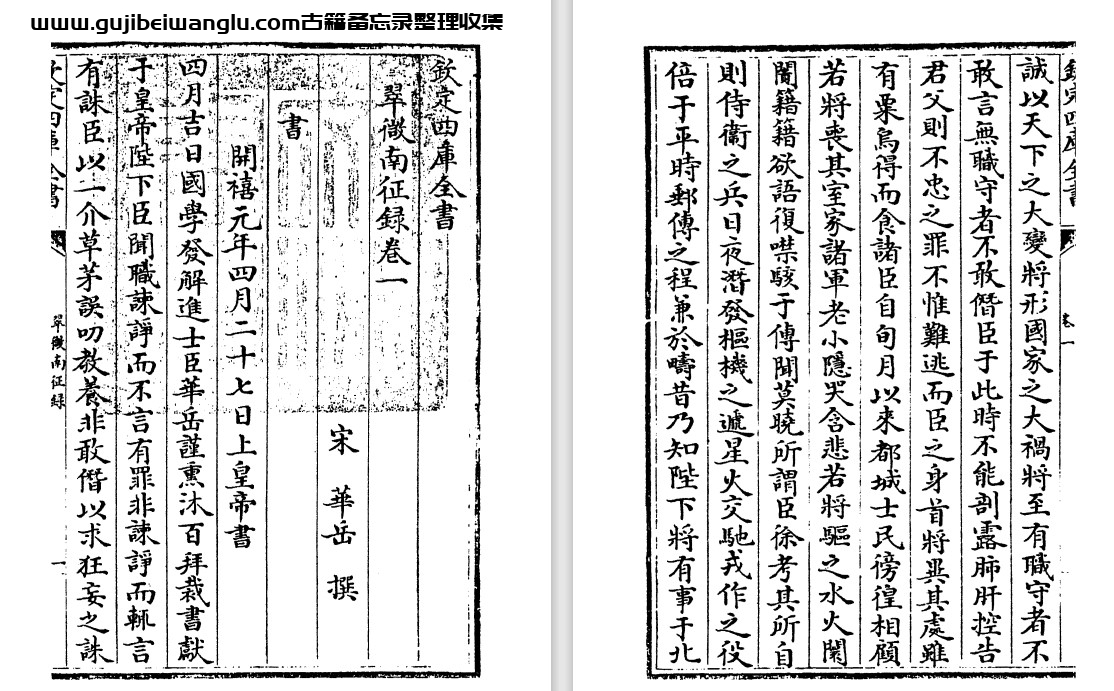 www.gujibeiwanglu.com古籍备忘录整理收集
欽定四庫全書
翠微南征録卷一
宋 華岳 撰
書
開禧元年四月二十七日上皇帝書
四月吉日國學發解進士臣華岳謹熏沐百拜裁書獻
于皇帝陛下臣聞職諫諍而不言有罪非諫諍而輒言
有誅臣以一介草茅誤叨教養非敢僭以求狂妄之誅
欽定四庫全書 翠微南征録 一
欽定四庫全書 卷一
誠以天下之大變將形國家之大禍將至有職守者不
敢言無職守者不敢僭臣于此時不能剖露肺肝控告
君父則不忠之罪不惟難逃而臣之身首將異其處雖
有粟烏得而食諸臣自旬月以來都城士民徬徨相顧
若將喪其室家諸軍老小隱哭含悲若將驅之水火闤
闠籍籍欲語復噤駭于傳聞莫曉所謂臣徐考其所自
則侍衛之兵日夜潛發樞機之遞星火交馳戎作之役
倍于平時郵傳之程兼於疇昔乃知陛下將有事于北